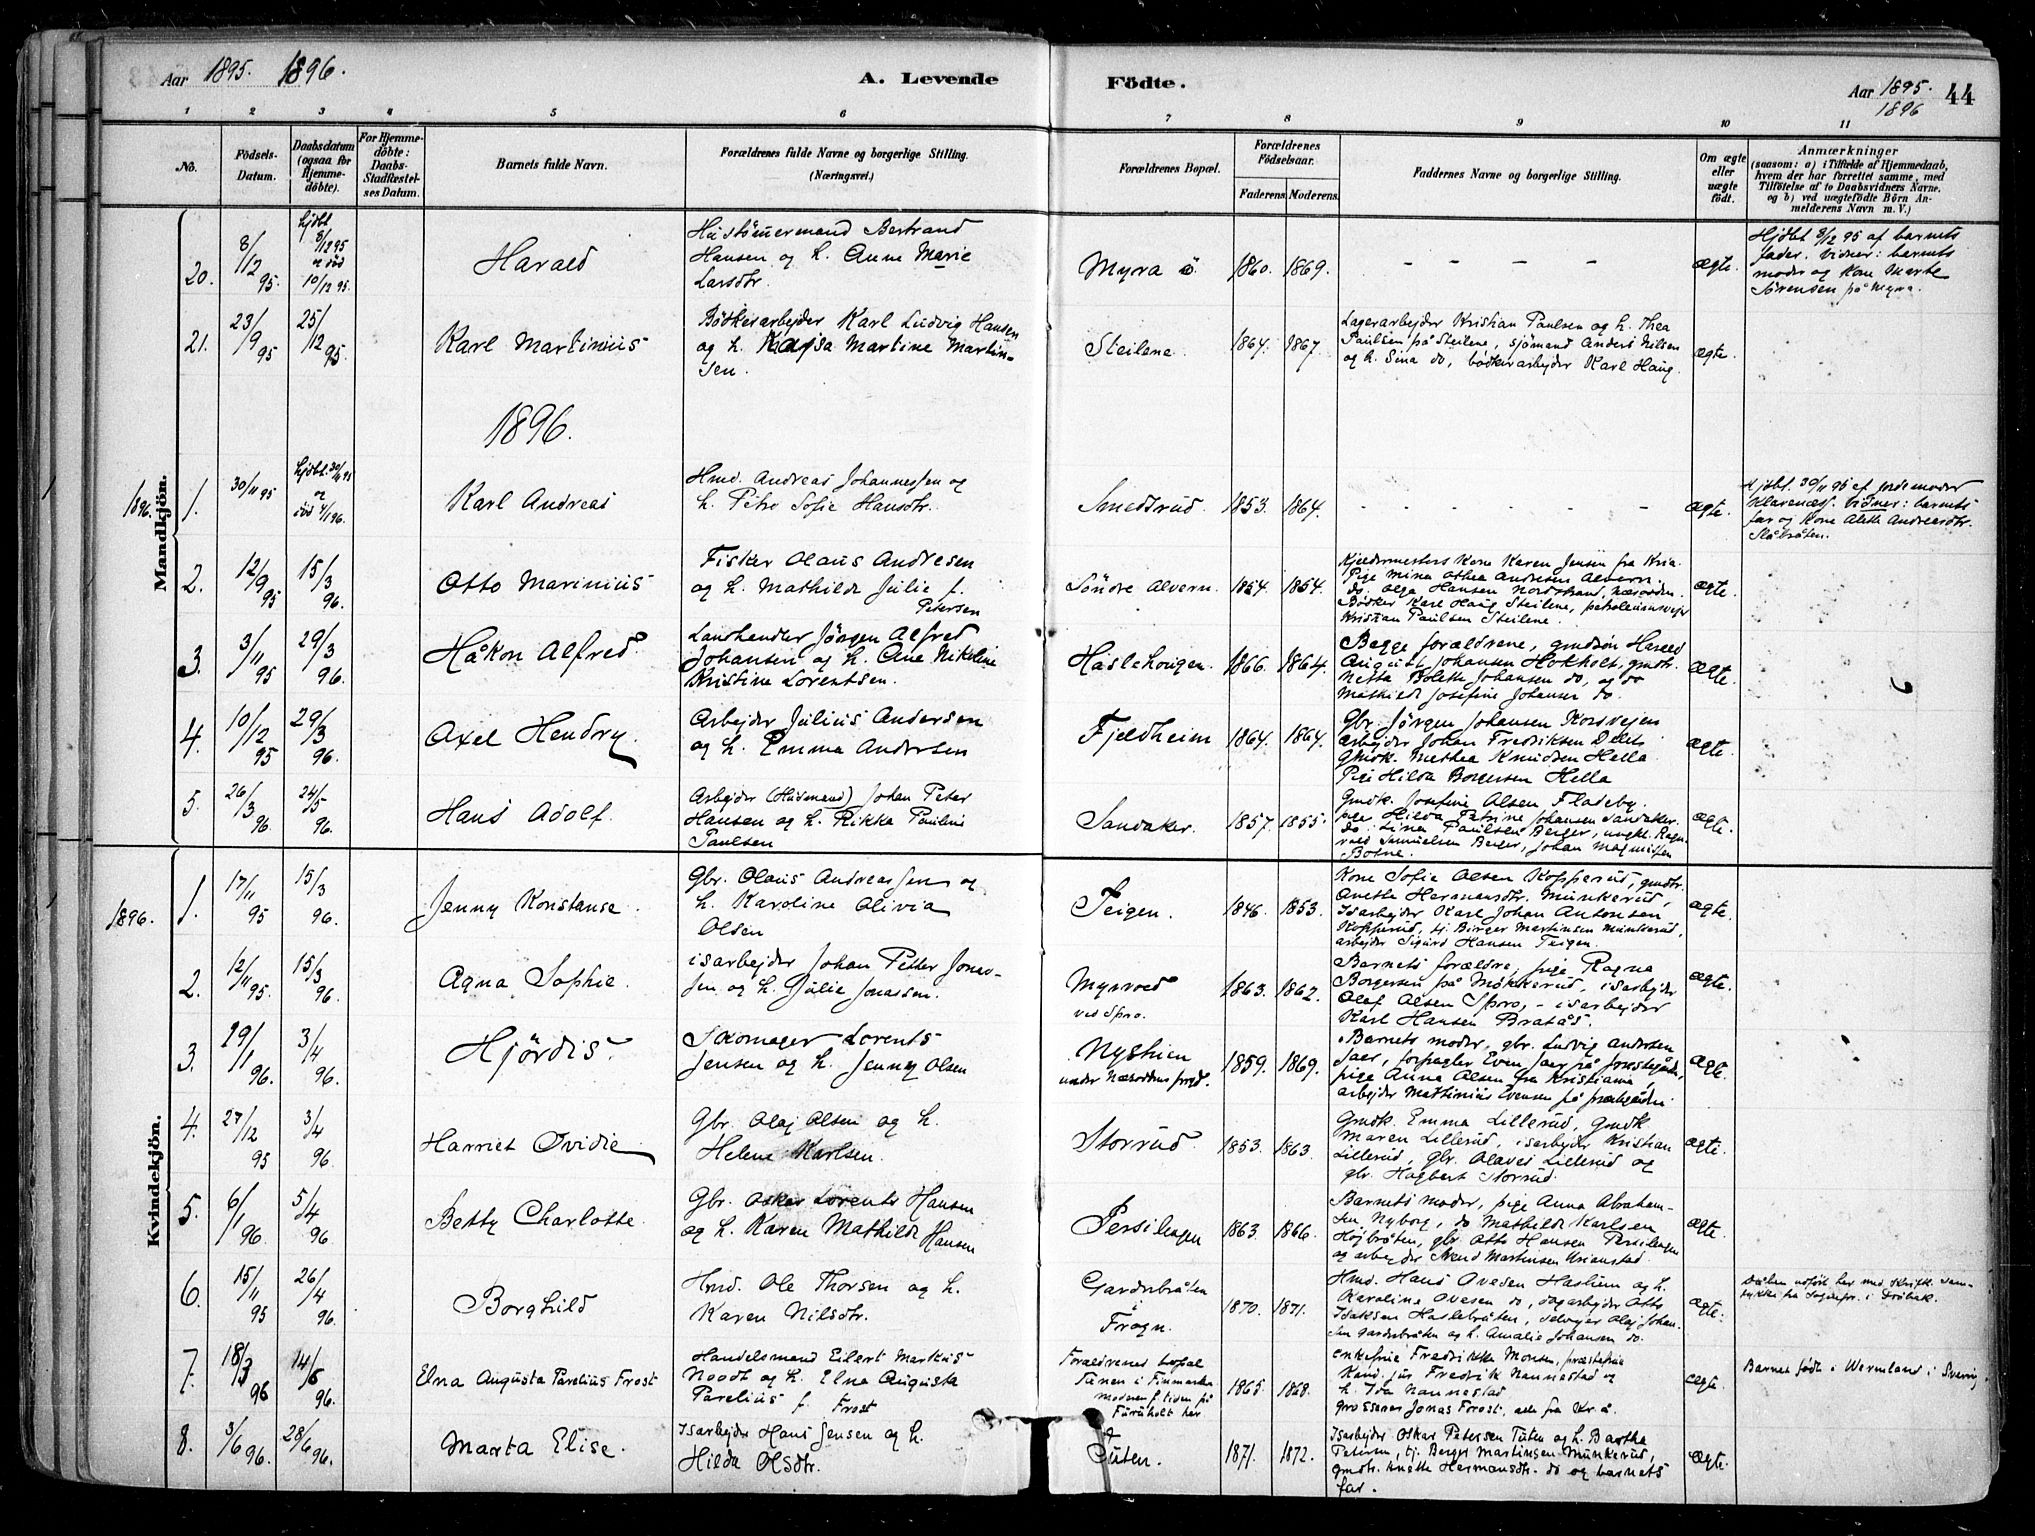 Aar 1895. 1896.
A. Levende
Födte.
Aar 1895.
1896
44
1 2 3 4 5 6 7 8 9 10 11
No.
Födsels-
Datum.
Daabsdatum
(ogsaa for
Hjemme-
döbte).
For Hjemme-
döbte:
Daabs-
Stadfæstel-
ses Datum.
Barnets fulde Navn.
Forældrenes fulde Navne og borgerlige Stilling.
(Næringsvei.)
Forældrenes Bopæl.
Forældrenes
Födselsaar.
Faderens. Moderens.
Faddernes Navne og borgerlige Stilling.
Om ægte
eller
uægte
födt.
Anmærkninger
(saasom: a) i Tilfælde af Hjemmedaab,
hvem der har forrettet samme, med
Tilföielse af to Daabsvidners Navne.
og b) ved uægtefödte Börn An-
melderens Navn m. V.)
Mandkjön.
20.
8/12 95
hjdbt
8/12 95
død
10/12 95.
Harald
Hustömermand Bertrand
Hansen og h. Anne Marie
Larsdtr.
Myra
1860. 1869.
- - - -
ægte.
Hjdbt 8/12 95 af barnets
fader. Vidner: barnets
moder og Kone Marte
Sörensen på Myra.
21.
23/9 95
25/12 95
Karl Martinius
Bödkerarbejder Karl Ludvig Hansen
og h. Kajsa Martine Martin-
sen.
Steilene.
1864. 1867.
Lagerarbejder Kristian Paulsen og h. Thea
Paulsen på Steilene, sjömand Anders Nilsen
og h. Sina do, bödkerarbejder Karl Haug.
ægte.
1896.
1896.
1.
30/11 95
hjdbt. 30/11 95
og
död 4/1 96.
Karl Andreas
Hmd. Andreas Johannessen og
h. Petra Sofie Hansdtr.
Smedsrud.
1853. 1864.
- - - - - -
ægte.
Hjdbt. 30/11 95 af jordemoder
Klarenæss. Vidner: barnets
far og Kone Alette Andreasdtr.
2.
12/9 95
15/3 96.
Otto Marinius
Fisker Olaus Andresen
og h. Mathilde Julie f.
Petersen
Söndre Alvern.
1854. 1854.
Kjeldermesters Kone Karen Jensen fra Kria.
Pige Mina Othea Andresen Alvern.
do. Olga Hansen Nordstrand, Næsodden.
Bödker Karl Haug Steilene, petroleumsvejer
Kristian Paulsen Steilene.
ægte.
3.
3/11 95
29/3 96.
Håkon Alfred
Landhandler Jörgen Alfred
Johansen og h. Ane Nikoline
Kristine Lorentsen.
Haslehougen.
1866. 1864.
Begge forældrene, gmdsön Harald
August Johansen Hokholt, gmdtr.
Netta Bolette Johansen do, og do
Mathilde Josefine Johansen do.
ægte.
4.
10/12 95
29/3 96.
Axel Hendry
Arbejder Julius Andersen
og h. Emma Andersen
Fjeldheim
1864. 1864.
Gbr. Jörgen Johansen Korsvejen
arbejder Johan Fredriksen
Gmdk. Mathea Knudsen Hella
Pige Hilda Borgersen Hella
ægte.
5.
26/3 96
24/5 96.
Hans Adolf.
Arbejder (Husmand) Johan Peter
Hansen og h. Rikka Pauline
Paulsen
Sandaker.
1857. 1855.
Gmdk. Josefine Olsen Fladeby.
pige Hilda Petrine Johansen Sandaker.
do. Lina Paulsen Berger, ungk. Ragn-
vald Samuelsen Berger, Johan Magnussen
ægte.
Kvindekjön.
1896.
1.
17/11 95
15/3 96.
Jenny Konstanse.
Gbr. Olaus Andreassen og
h. Karoline Olivia
Olsen
Teigen.
1846. 1853.
Kone Sofie Olsen Kopperud, gmdtr.
Anette Hermansdtr. Munkerud,
Isarbejder Karl Johan Antonsen
Kopperud, tj. Birger Martinsen Munkerud,
arbejder Sigurd Hansen Teigen.
ægte.
2.
12/11 95.
15/3 96.
Agna Sophie.
isarbejder Johan Petter Jonas-
sen og h. Julie Jonassen.
Myrvold
ved Spro.
1863. 1862.
Barnets forældre, pige Ragna
Borgersen på Mökkerud, isarbejder
Olaf Olsen Spro, - isarbejder
Karl Hansen Bratås.
ægte.
3.
29/1 96.
3/4 96.
Hjördis.
Skomager Lorents
Jensen og h. Jenny Olsen
Nystuen
under Næsoddens prgd.
1859. 1869.
Barnets moder, gbr. Ludvig Andersen
Jaer, forpagter Even Jaer på prestegården,
pige Anna Olsen fra Kristiania,
arbejder Mathinius Evensen på prestegården.
ægte.
4.
27/12 95
3/4 96.
Harriet Ovidie
Gbr. Olaj Olsen og h.
Helene Karlsen.
Storrud
1853. 1863.
Gmdk. Emma Lillerud, Gmdk
Maren Lillerud, isarbejder Kristian
Lillerud, gbr. Olaves Lillerud og
gbr. Hagbert Storrud.
ægte.
5.
6/1 96
5/4 96
Betty Charlotte.
Gbr. Oskar Lorents Hansen
og h. Karen Mathilde Hansen
Persilengen
1863. 1866.
Barnets moder, pige Anna Abraham-
sen Nyborg, do Mathilde Karlsen
Hojbråten, gbr. Otto Hansen Persilengen
og arbejder Svend Martinsen
ægte.
6.
15/11 95
26/4 96.
Borghild
Hmd. Ole Thorsen og h.
Karen Nilsdtr.
Gardersbråten
i
Frogn.
1870. 1871.
Hmd. Hans Ovesen Haslum og h.
Karoline Ovesen do, dagarbejder Otto
Isaksen Haslebråten, selvejer Olaj Johan-
sen Gardersbråten og h. Amalie Johansen do.
ægte.
Dåben udfört her med Skriftl. Sam-
tykke fra Sognepr. i Dröbak.
7.
18/3 96
14/6 96.
Elna Augusta Parelius Frost
Handelsmand Eilert Markus
Noodt og h. Elna Augusta
Parelius f. Frost
Forældrenes bopal
Tanen i Finmarken
modren f. tiden på
Furuholt her
1865. 1868.
enkefrue Fredrikke Monsen, præstefrue
Kand. jur Fredrik Nannestad og
h. Ida Nannestad
grosserer Jonas Frost, alle fra Kr.a.
ægte.
Barnet födt i Wermland i Sverig.
8.
3/6 96.
28/6 96.
Marta Elise.
Isarbejder Hans Jensen og h.
Hilda Olsdtr.
Tuten.
1871. 1872.
Isarbejder Oskar Petersen Tuten og h. Bartha
Petersen, tj. Berger Martinsen Munkerud,
gmdtr. Anette Hermansdtr. do og barnets
far.
ægte.